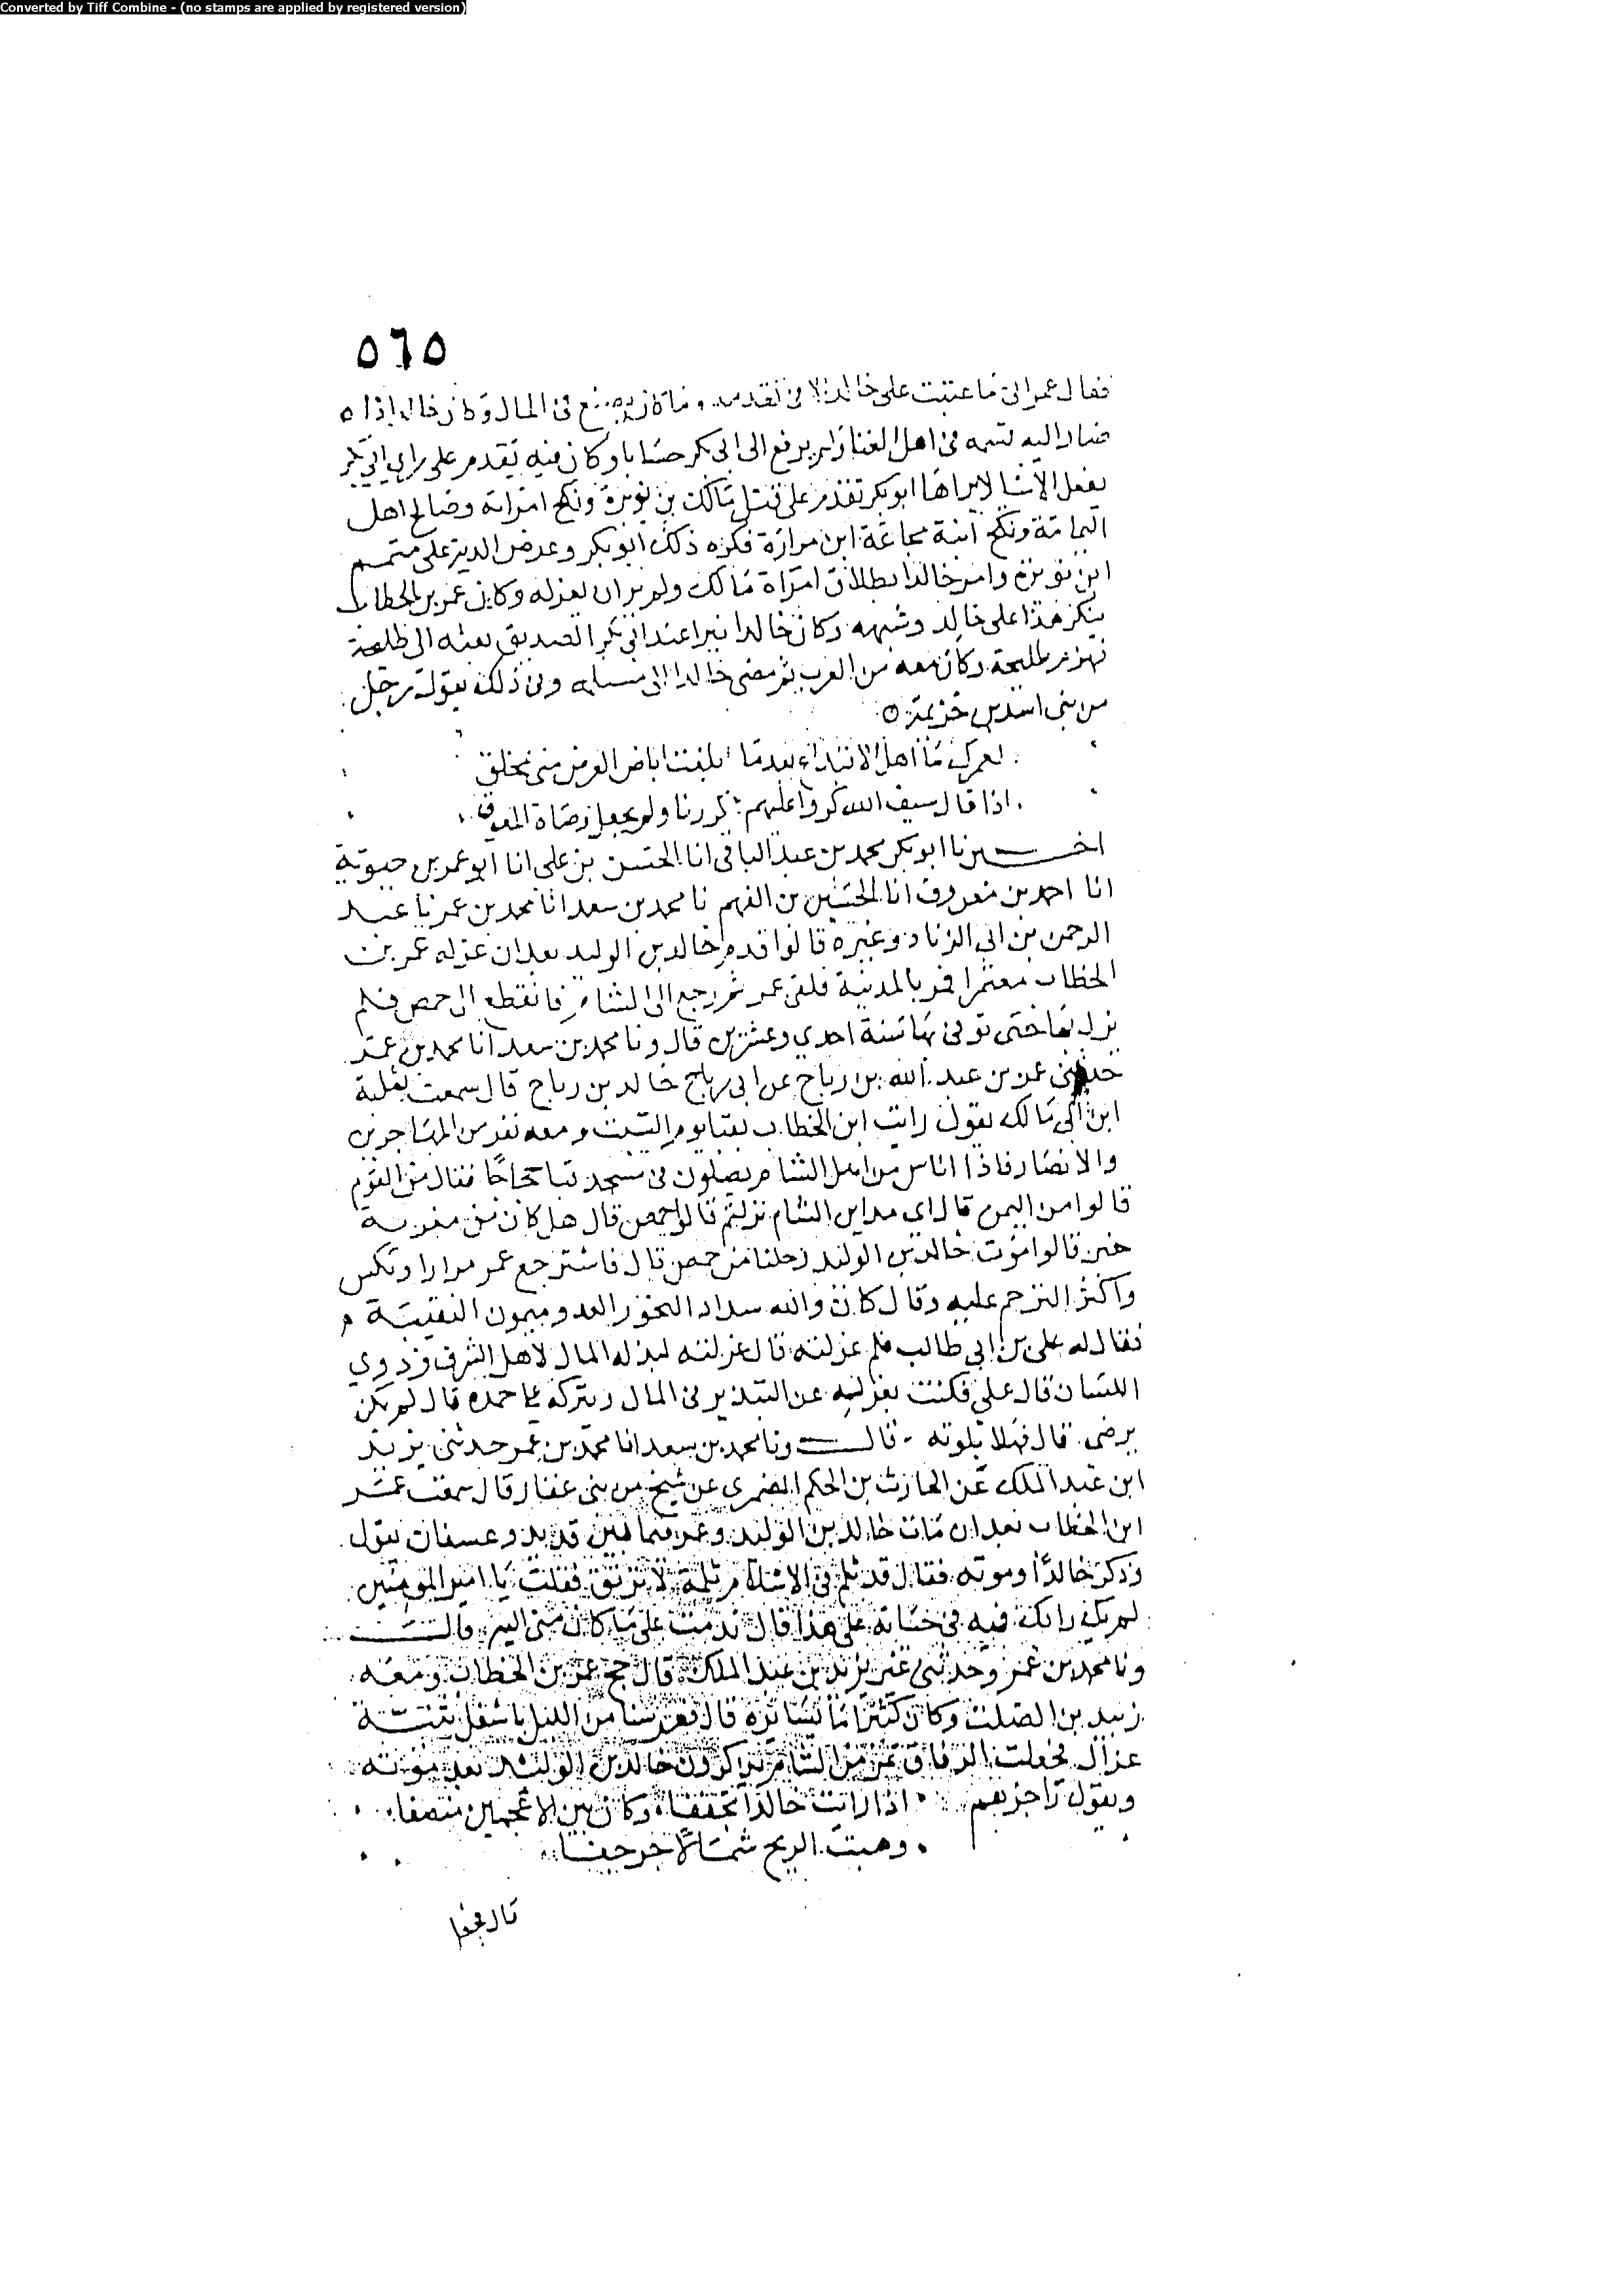 Converted by Tiff Combine - (no stamps are applied by registered version)
٥٦٥
فقال عمر انى ما عتبت على خالد الا فى تقدمه وما كان يصنع فى المال وكان خالد اذا ه
صار اليه قسمه فى اهل الغنا ولم يرفع الى ابى بكر حسابا وكان فيه تقدم على راي ابي بكر
يفعل الاشيا لا يراها ابو بكر تقدم على قتل مالك بن نويرة ونكح امراته وصالح اهل
اليمامة ونكح ابنة مجاعة ابن مرارة فكره ذلك ابو بكر وعرض الدية على متمم
ابن نويرة وامر خالدا بطلاق امراة مالك ولم ير ان يعزله وكان عمر بن الخطاب
ينكر هذا على خالد وشبهه وكان خالد اميرا عند ابي بكر الصديق بعثه الى طليحة
فهزم طليحة وكان معه من العرب ثم مضى خالد الى مسيلمه وفى ذلك يقول رجل
من بنى اسد بن خزيمة ٥
لعمرك ما اهل الا بعدما بلغت اباض العرض منى مخلق
اذا قال سيف الله كروا عليهم كررنا ولم نجعل وصاة المعوق
اخبرنا ابو بكر محمد بن عبد الباقى انا الحسن بن علي انا ابو عمر بن حيوية
انا احمد بن معروف انا الحسين بن الفهم نا محمد بن سعد انا محمد بن عمر نا عبد
الرحمن بن ابي الزناد وغيره قالوا قدم خالد بن الوليد بعد ان عزله عمر بن
الخطاب معتمرا فمر بالمدينة فلقى عمر ثم رجع الى الشام فانقطع الى حمص فلم
يزل بها حتى توفى بها سنة احدي وعشرين قال ونا محمد بن سعد انا محمد بن عمر
حدثنى عمر بن عبد الله بن رباح عن ابى رباح خالد بن رباح قال سمعت ثعلبة
ابن ابي مالك يقول رايت ابن الخطاب بقبا يوم السبت ومعه نفر من المهاجرين
والانصار فاذا اناس من اهل الشام يصلون فى مسجد قبا حجاجا فقال من القوم
قالوا من اليمن قال اي مداين الشام نزلتم قالوا حمص قال هل كان من مغربة
خبر قالوا موت خالد بن الوليد رحلنا من حمص قال فاسترجع عمر مرارا ونكس
واكثر الترحم عليه وقال كان والله سداد النحور العدو ميمون النقيبة
فقال له علي بن ابي طالب فلم عزلته قال عزلته لبذله المال لاهل الشرف وذوي
اللسان قال علي فكنت تعزله عن التبذير فى المال وتتركه على حمده قال لم يكن
يرضى قال فهلا بلوته - قال ونا محمد بن سعد انا محمد بن عمر حدثنى يزيد
ابن عبد الملك عن الحارث بن الحكم الضمري عن شيخ من بنى غفار قال سمعت عمر
ابن الخطاب بعد ان مات خالد بن الوليد وعمر فيما بين قديد وعسفان يقول
وذكر خالدا وموته فقال قد ثلم فى الاسلام ثلمة لا ترتق فقلت يا امير المومنين
لم يكن رايك فيه فى حياته على هذا قال ندمت على ما كان منى اليه قال
ونا محمد بن عمر وحدثنى غير يزيد بن عبد الملك قال حج عمر بن الخطاب ومعه
زبيد بن الصلت وكان كثيرا ما يسايره قال فعرسنا من الليل باسفل ثنية
غزال فجعلت الرفاق تمر من الشام يذاكرون خالد بن الوليد بعد موته
ويقول راجزهم اذا رايت خالدا تخففا وكان بين الاعجمين منصفا
وهبت الريح شمالا حرجفا
قال فجعل